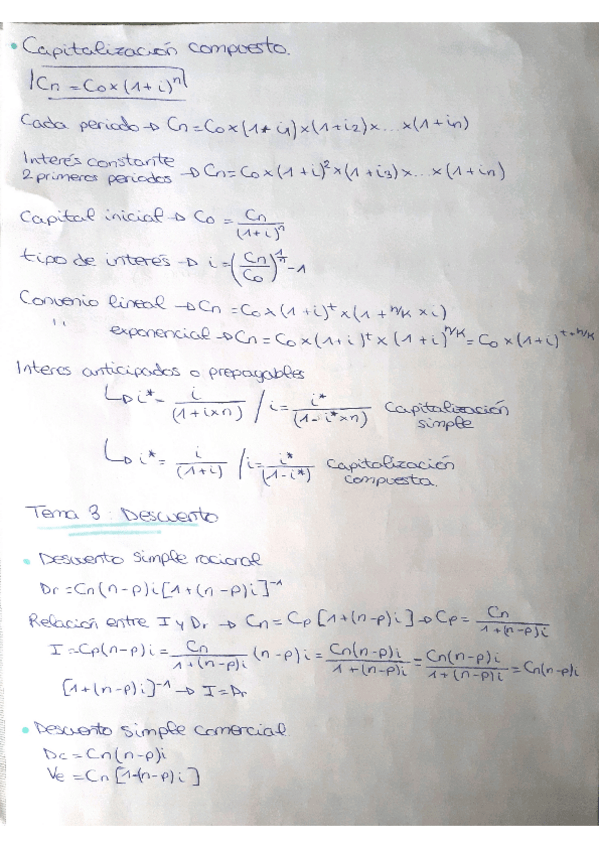 • Capitalización compuesta.
Cn = Co x (1+i)^n
Cada periodo → Cn = Co x (1+i1) x (1+i2) x ... x (1+in)
Interés constante
2 primeros periodos → Cn = Co x (1+i)^2 x (1+i3) x ... x (1+in)
Capital inicial → Co = Cn/(1+i)^n
tipo de interés → i = (Cn/Co)^(1/n) - 1
Convenio lineal → Cn = Co x (1+i)^t x (1 + n/k x i)
" exponencial → Cn = Co x (1+i)^t x (1+i)^(n/k) = Co x (1+i)^(t+n/k)
Interes anticipados o prepagables
↳ i* = i/(1+ixn) / i = i*/(1-i*xn) Capitalización simple
↳ i* = i/(1+i) / i = i*/(1-i*) Capitalización compuesta.
Tema 3: Descuento
• Descuento simple racional
Dr = Cn(n-p)i[1+(n-p)i]^-1
Relación entre I y Dr → Cn = Cp[1+(n-p)i] → Cp = Cn/1+(n-p)i
I = Cp(n-p)i = Cn/1+(n-p)i (n-p)i = Cn(n-p)i/1+(n-p)i = Cn(n-p)i/1+(n-p)i = Cn(n-p)i
[1+(n-p)i]^-1 → I = Dr
• Descuento simple comercial
Dc = Cn(n-p)i
Ve = Cn[1-(n-p)i]